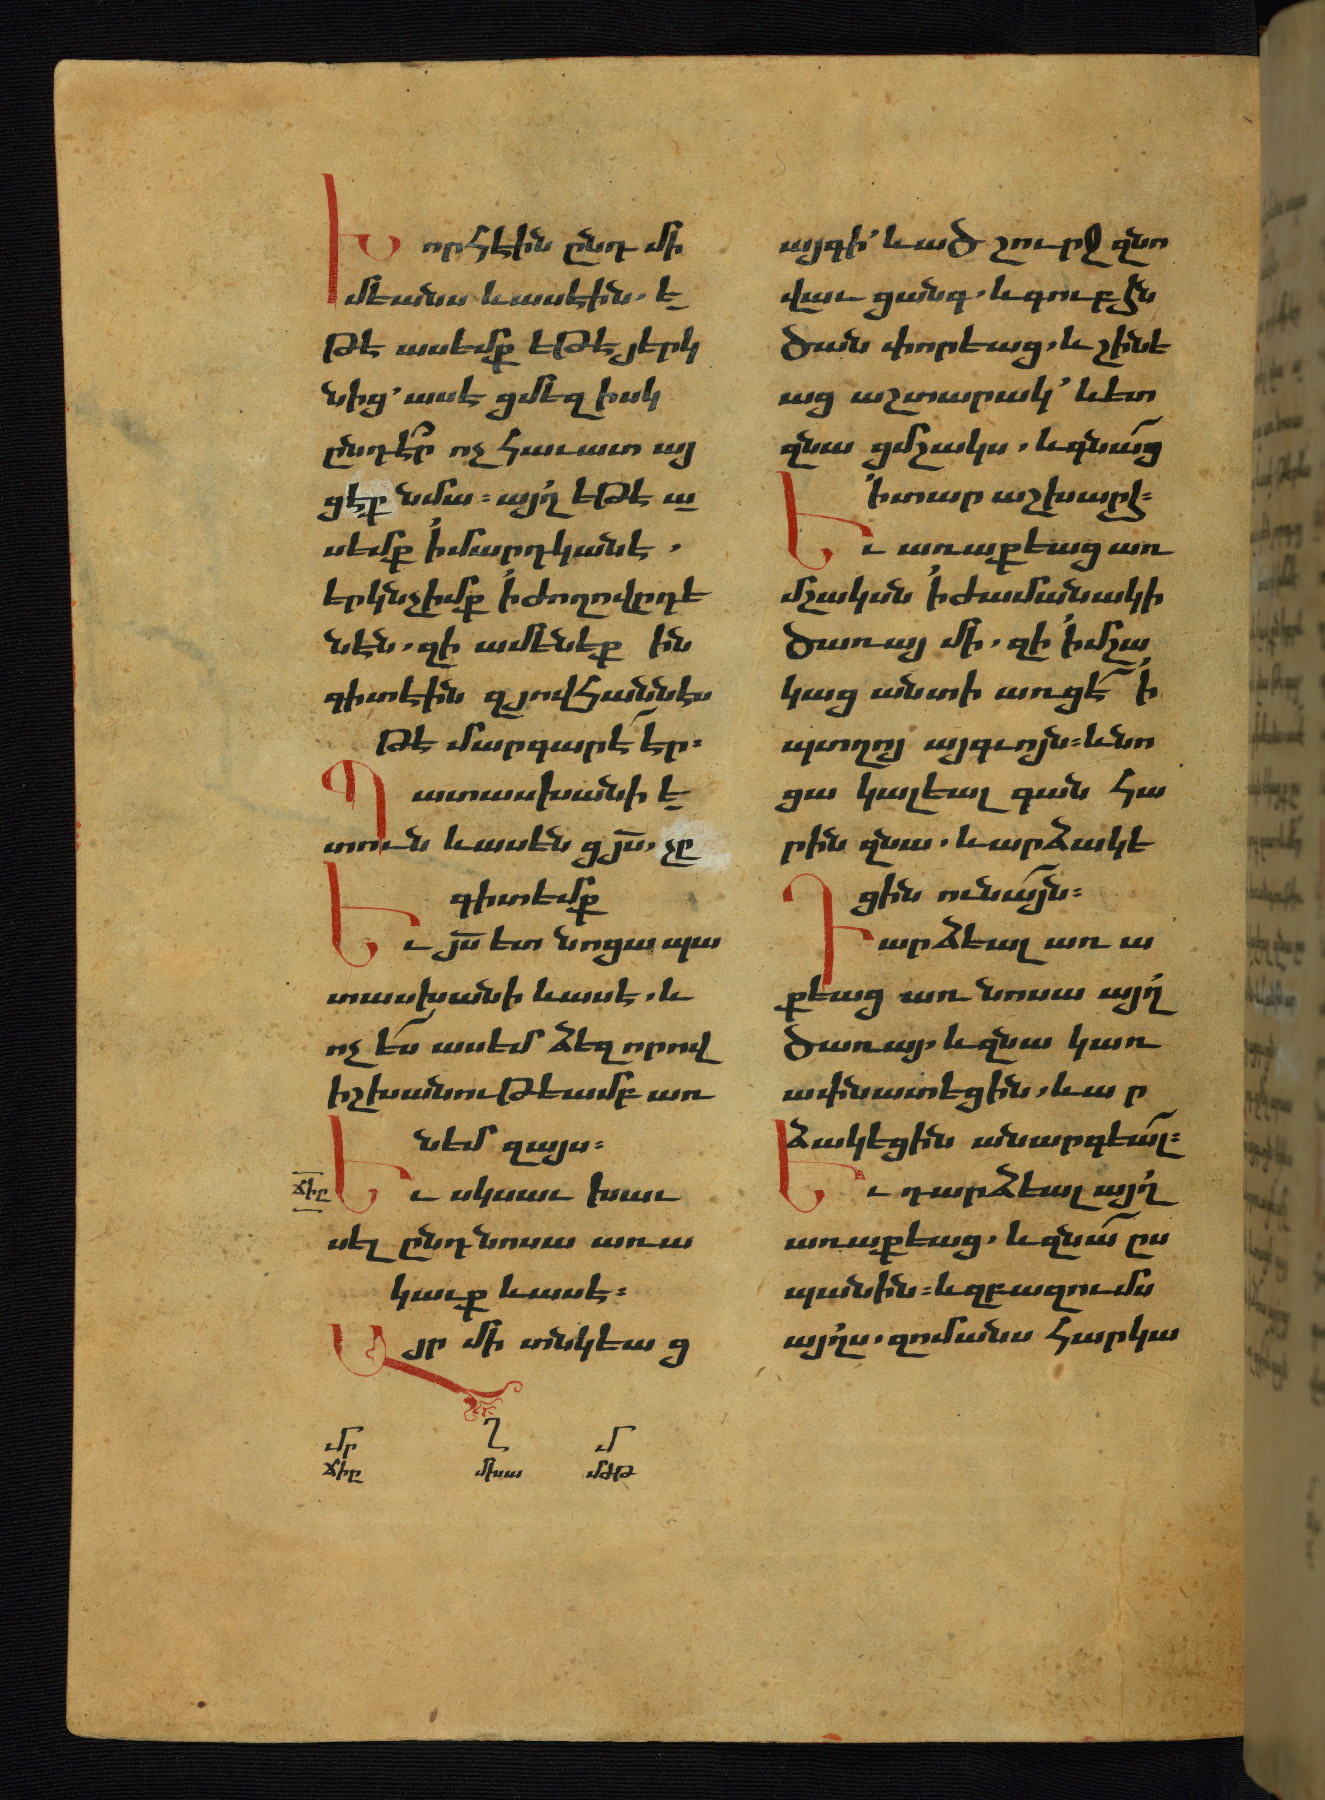 Խորհէին ընդ մի
մեանս և ասէին. ե
թէ ասեմք եթէ յերկ
նից՝ ասէ ցմեզ իսկ
ընդէ՞ր ոչ հաւատայ
ցէք նմա։ այղ եթէ ա
սեմք ՚ի մարդկանէ.
երկնչիմք ՚ի ժողովրդե
նէն. զի ամենեք ին
գիտէին զյովհաննէս
թէ մարգարէ էր։
Պատասխանի ե
տուն և ասեն ցյս. չը
գիտեմք
Եւ յս ետ նոցա պա
տասխանի և ասէ. և
ոչ ես ասեմ ձեզ որով
իշխանութեամբ առ
նեմ զայս։
ՃԻԸ
Եւ սկսաւ խաւ
սել ընդ նոսա առա
կաւք և ասէ։
Այր մի տնկեաց
այգի՝ և ած շուրջ զնո
վաւ ցանգ. և գուբ հն
ծան փորեաց. և շինե
աց աշտարակ՝ և ետ
զնա ցմշակս. և գնաց
՚ի տար աշխարհ։
Եւ առաքեաց առ
մշակսն ՚ի ժամանակի
ծառայ մի. զի ՚ի մշա
կաց անտի առցէ ՚ի
պտղոյ այգւոյն։ և նո
ցա կալեալ գան հա
րին զնա. և արձակե
ցին ունայն։
Դարձեալ առ ա
քեաց առ նոսա այղ
ծառայ. և զնա կառ
ափնատեցին. և ա ր
ձակեցին անարգեալ։
Եւ դարձեալ այղ
առաքեաց. և զնա ըս
պանին։ և զբազումս
այղս. զոմանս հարկա
մր ղ մ
ճիը մխա մժթ